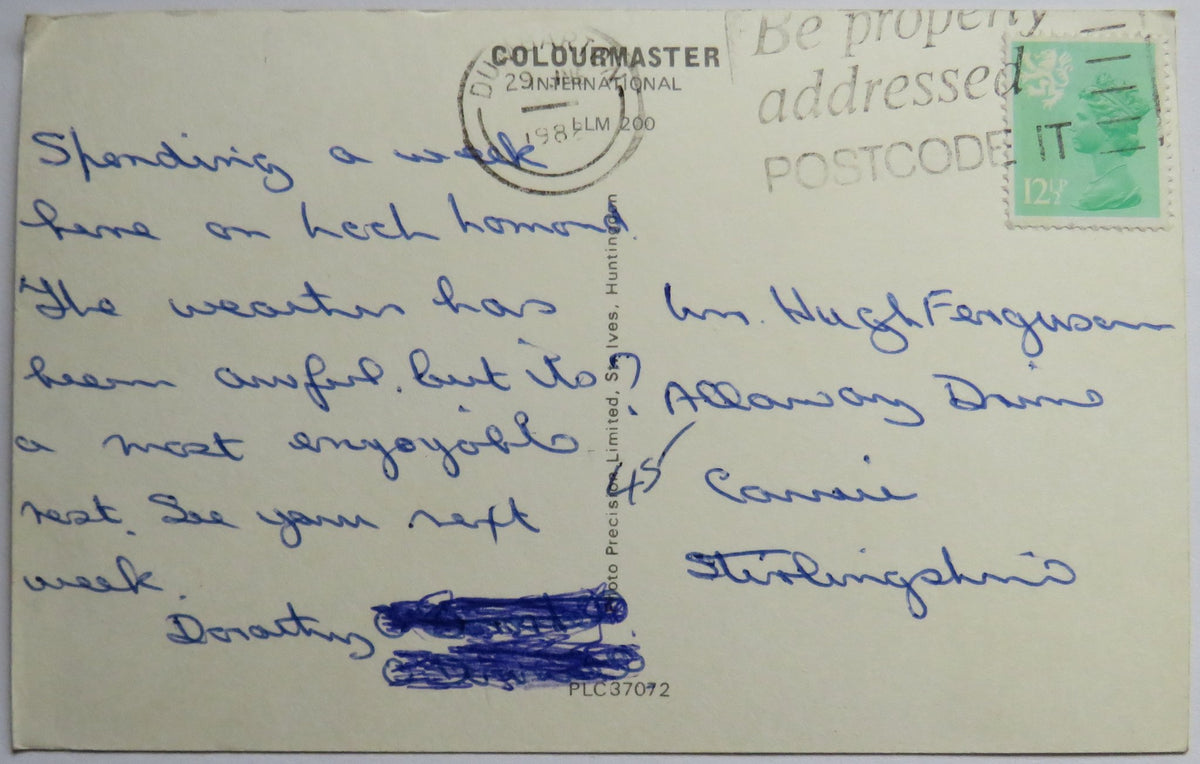 COLOURMASTER
INTERNATIONAL
LLM 200
29
198
Be properly
addressed
POSTCODE IT
12½P
Spending a week
here on Loch Lomond.
The weather has
been awful, but its
a most enjoyable
rest. See you next
week.
Dorothy
Photo Precision Limited, St. Ives, Huntingdon
PLC37072
Mrs. Hugh Ferguson
? Allaway Drive
45
Stirlingshire